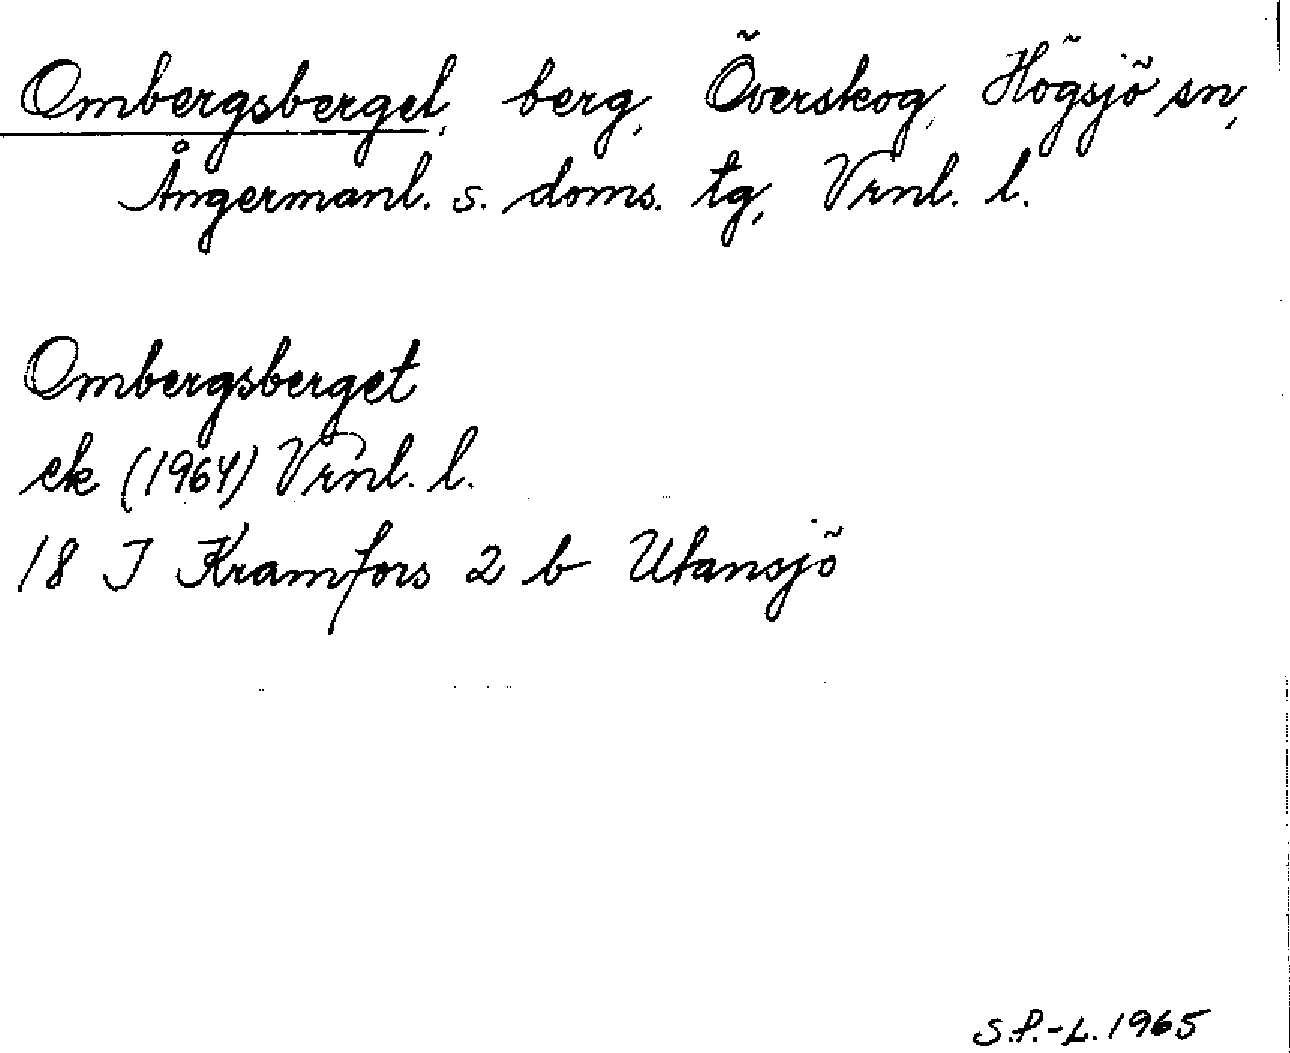 Ombergsberget, berg, Överskog, Högsjö sn,
Ångermanl. s. doms. tg, Vrnl. l.
Ombergsberget
ek (1964) Vrnl. l.
18 I Kramfors 2 b Utansjö
S.P.-L. 1965